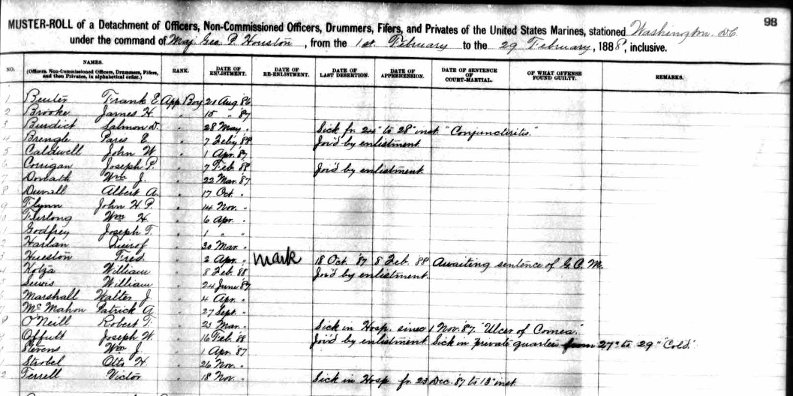 98
MUSTER-ROLL of a Detachment of Officers, Non-Commissioned Officers, Drummers, Fifers, and Privates of the United States Marines, stationed Washington DC
under the command of Maj. Geo. P. Houston, from the 1st February to the 29 February, 1888, inclusive.
NO. NAMES. (Officers, Non-Commissioned Officers, Drummers, Fifers, and then Privates, in alphabetical order.) RANK. DATE OF ENLISTMENT. DATE OF RE-ENLISTMENT. DATE OF LAST DESERTION. DATE OF APPREHENSION. DATE OF SENTENCE OF COURT-MARTIAL. OF WHAT OFFENSE FOUND GUILTY. REMARKS.
1 Frank E. App Boy 21 Aug 86
2 Brooke James H. " 15 " 87
3 Burdict D. " 28 May "
Sick fr 24" to 28" inst "Conjunctivitis"
4 Brengle E. " 7 Feby 88 Joi'd by enlistment
5 Caldwell John W. " 1 Apr 87
6 Corrigan Joseph P. " 7 Feb 88 Joi'd by enlistment
7 Donath Wm J. " 22 Mar 87
8 Duvall Albert A. " 17 Oct "
9 Flynn John H. P. " 14 Nov "
0 Furlong Wm H. " 6 Apr "
1 Godfrey Joseph T. " 1 " "
2 Harlan " 30 Mar "
3 Hueston Fred " 2 Apr " mark 18 Oct 87 8 Feb. 88 Awaiting sentence of G. C. M.
4 William " 8 Feb 88 Joi'd by enlistment
5 William " 24 June 87
6 Marshall Walter J. " 4 Apr "
7 McMahon Patrick A. " 27 Sept "
8 O'Neill Robert T. " 23 Mar " Sick in Hosp. since 1 Nov '87. "Ulcer of Cornea"
Offutt Joseph W. " 16 Feb 88 Joi'd by enlistment Sick in private quarters from 27" to 29" "Cold"
Stevens Wm J. " 1 Apr 87
Strobel Otto H. " 26 Nov "
2 Terrell Victor " 18 Nov " Sick in Hosp fr 23 Dec. 87 to 13" inst